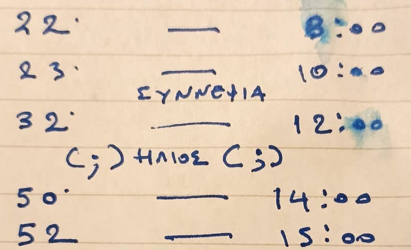 22· — 8:00
23· — 10:00
ΣΥΝΝΕΦΙΑ
32· — 12:00
(;) ΗΛΙΟΣ (;)
50· — 14:00
52 — 15:00